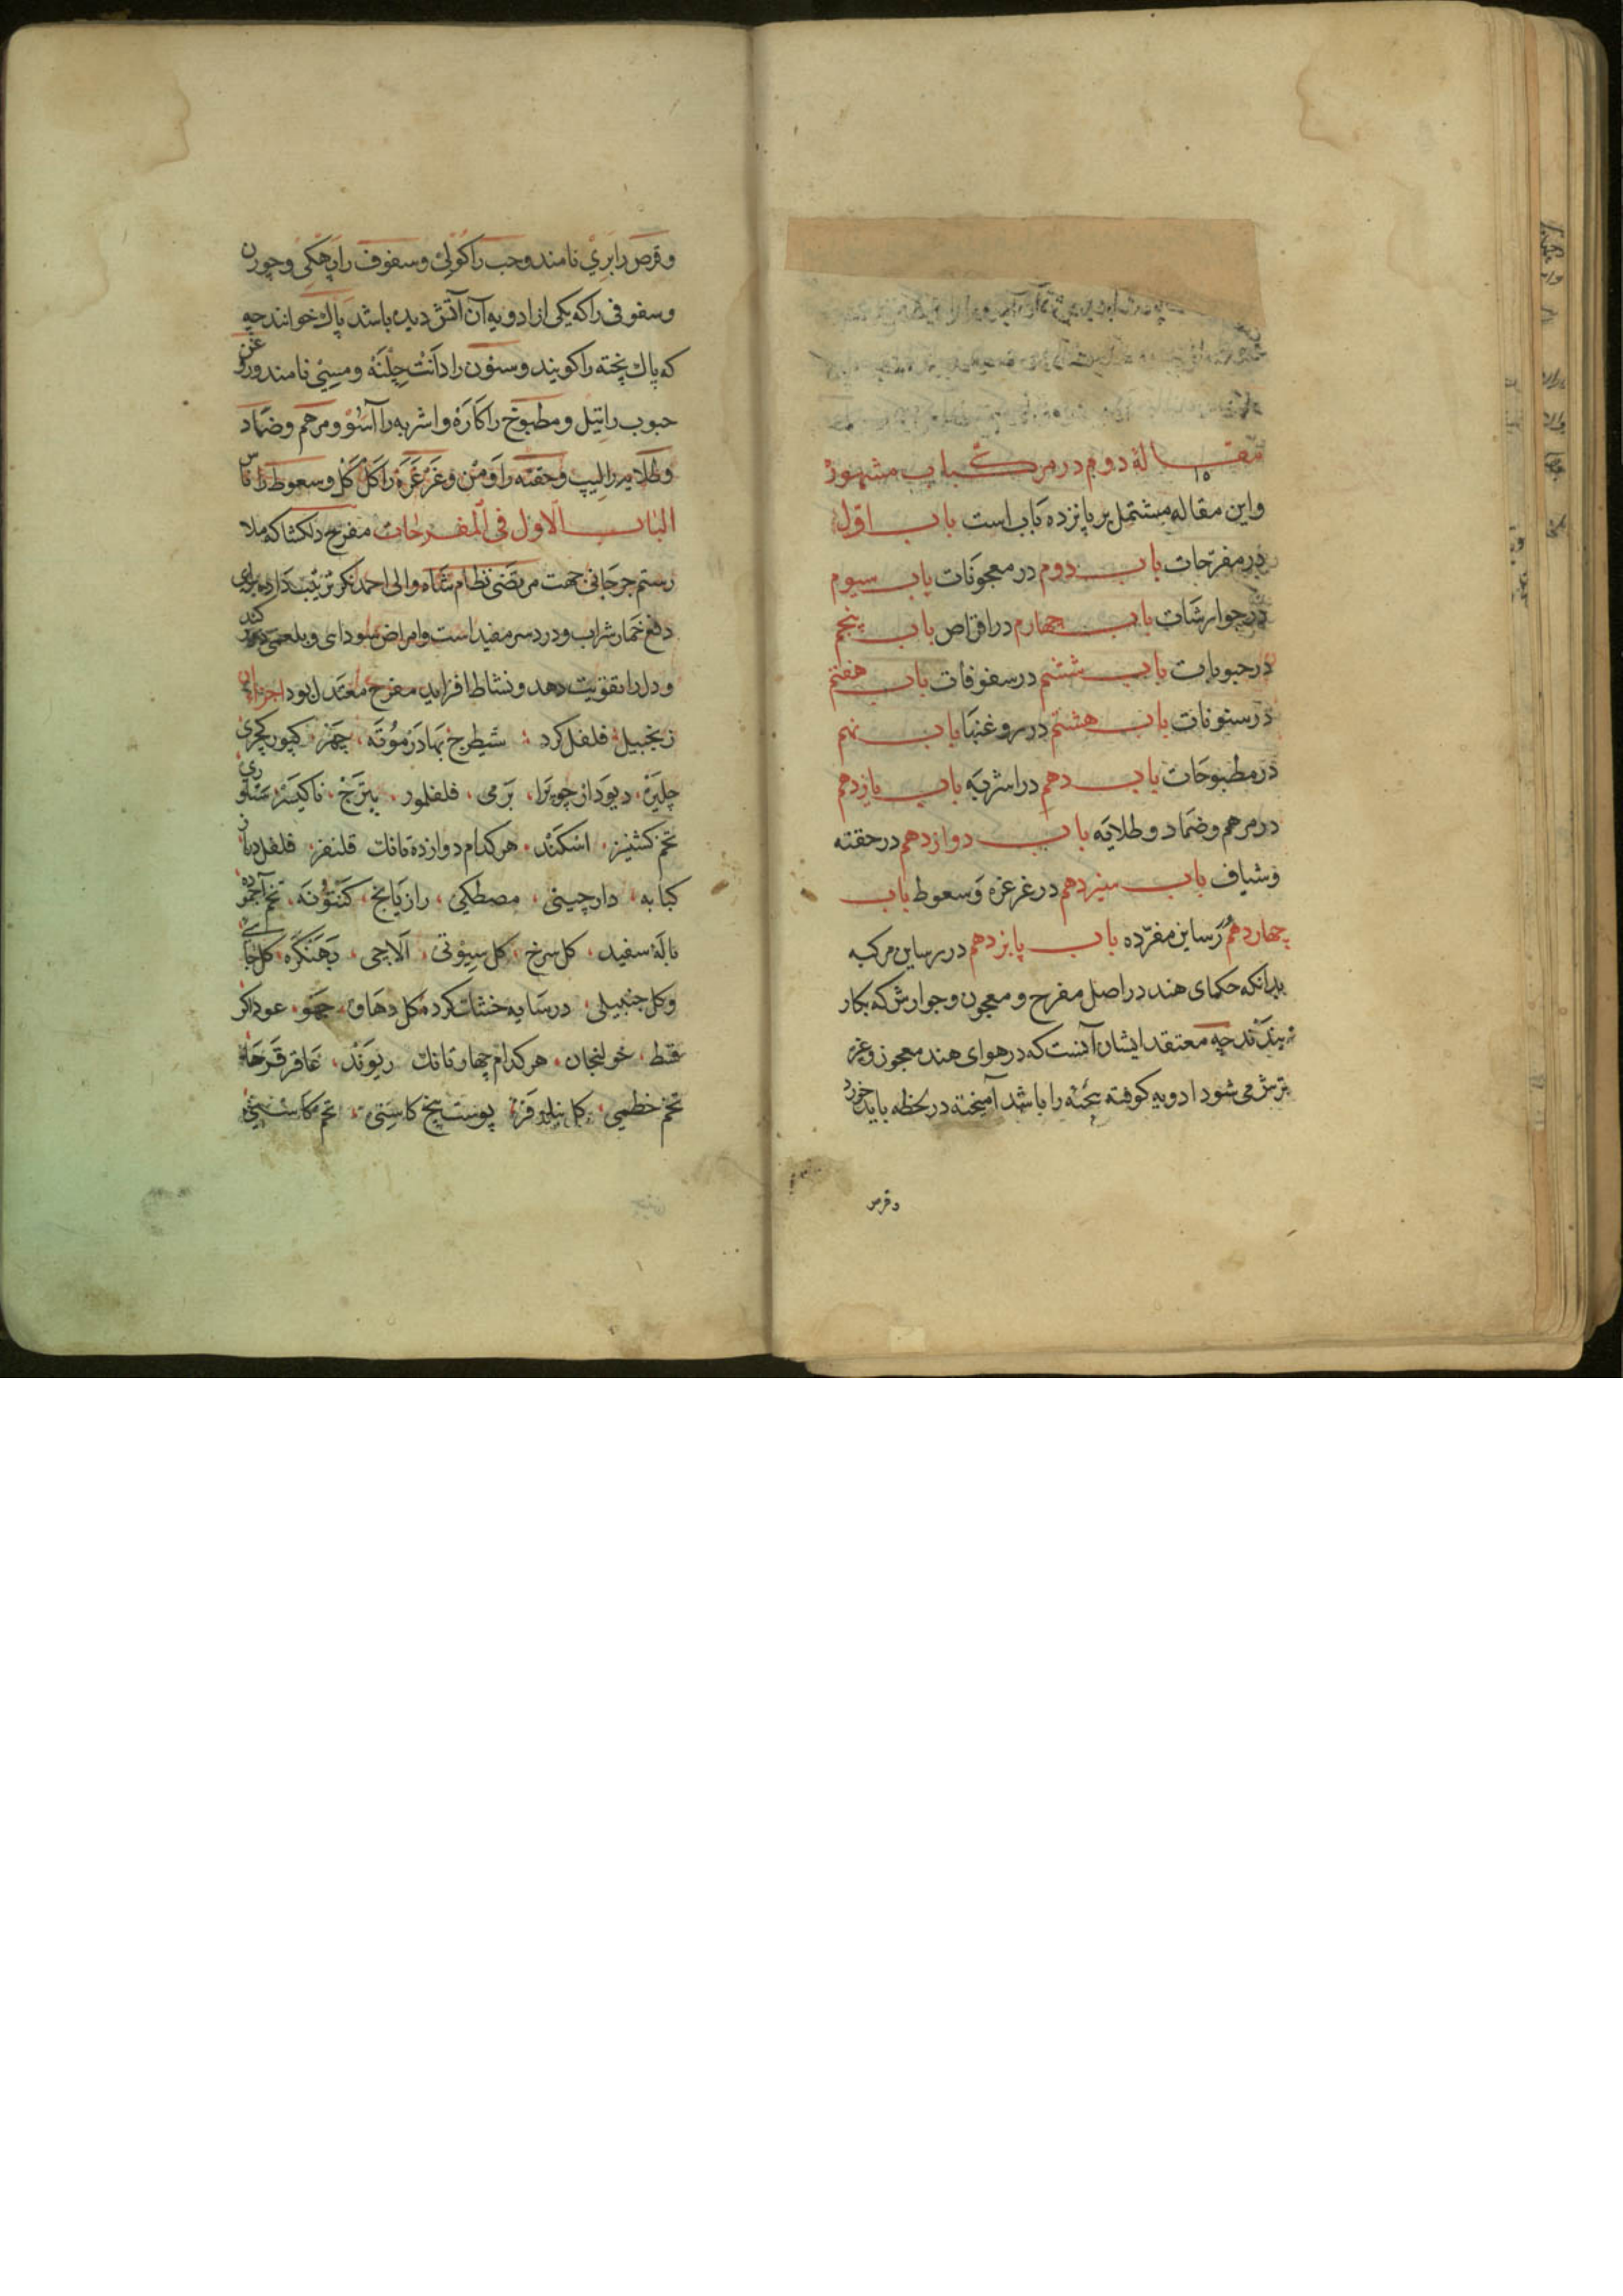 مقالهٔ دوم در مرکبات مشهور
واین مقاله مشتمل بر پانزده باب است باب اول
در مفرّحات باب دوم در معجونات باب سیوم
در جوارشات باب چهارم در اقراص باب پنجم
در حبوبات باب ششم در سفوفات باب هفتم
در سنونات باب هشتم در روغنها باب نهم
در مطبوخات باب دهم در اشربه باب یازدهم
در مرهم وضماد وطلایه باب دوازدهم در حقنه
وشیاف باب سیزدهم در غرغره وسعوط باب
چهاردهم رساین مفرده باب پانزدهم در رساین مرکبه
بدانکه حکمای هند در اصل مفرح و معجون وجوارش که بکار
نبندند چه معتقد ایشان آنست که در هوای هند معجون وغیره
ترش می شود ادویه کوفته بیخته را باشد آمیخته در لحظه باید خورد
وقرص
وقرص را بري نامند وحب را کولي وسفوف را پهکي وچورن
وسفوفی را که یکی از ادویه آن آتش دیده باشد پاک خوانند چه
که پاک پخته را کویند وسنون را دانت چلنه ومسي نامند وروغن
حبوب را تیل ومطبوخ را کاره واشربه را آسو ومرهم وضماد
وطلایه را لیپ وحقنه را ومن وغرغره را کل کل وسعوط را ناس
الباب الاول فی المفرحات مفرح دلکشا که ملا
رستم جرجانی جهت مرتضی نظام شاه والی احمدنکر ترتیب داده برای
دفع خمار شراب ودرد سر مفید است وامراض سودای وبلغمی دور کند
ودل را تقویت دهد ونشاط افزاید مفرح معتدل بود اجزاء آن
زنجبیل فلفل کرد شیطرج بهادرموته چهر کپور کچری
چلیر دیودار چوپرا برمی فلفلمور پترج ناکیسر ستاوری
تخم کشنیز اسکند هر کدام دوازده تانک قلنفر فلفل دراز
کبابه دارچینی مصطکی رازیانج کنتونه تخم آجموده
بالهٔ سفید کل سرخ کل سیوتی الاچی بهنکره کل جائی
وکل جنبیلی در سایه خشک کرده کل دهاوه چهو عود اکر
قسط خولنجان هر کدام چهار تانک ریوند عاقر قرحا
تخم خطمی کل نیلوفر پوست بیخ کاسنی تخم کاسنی